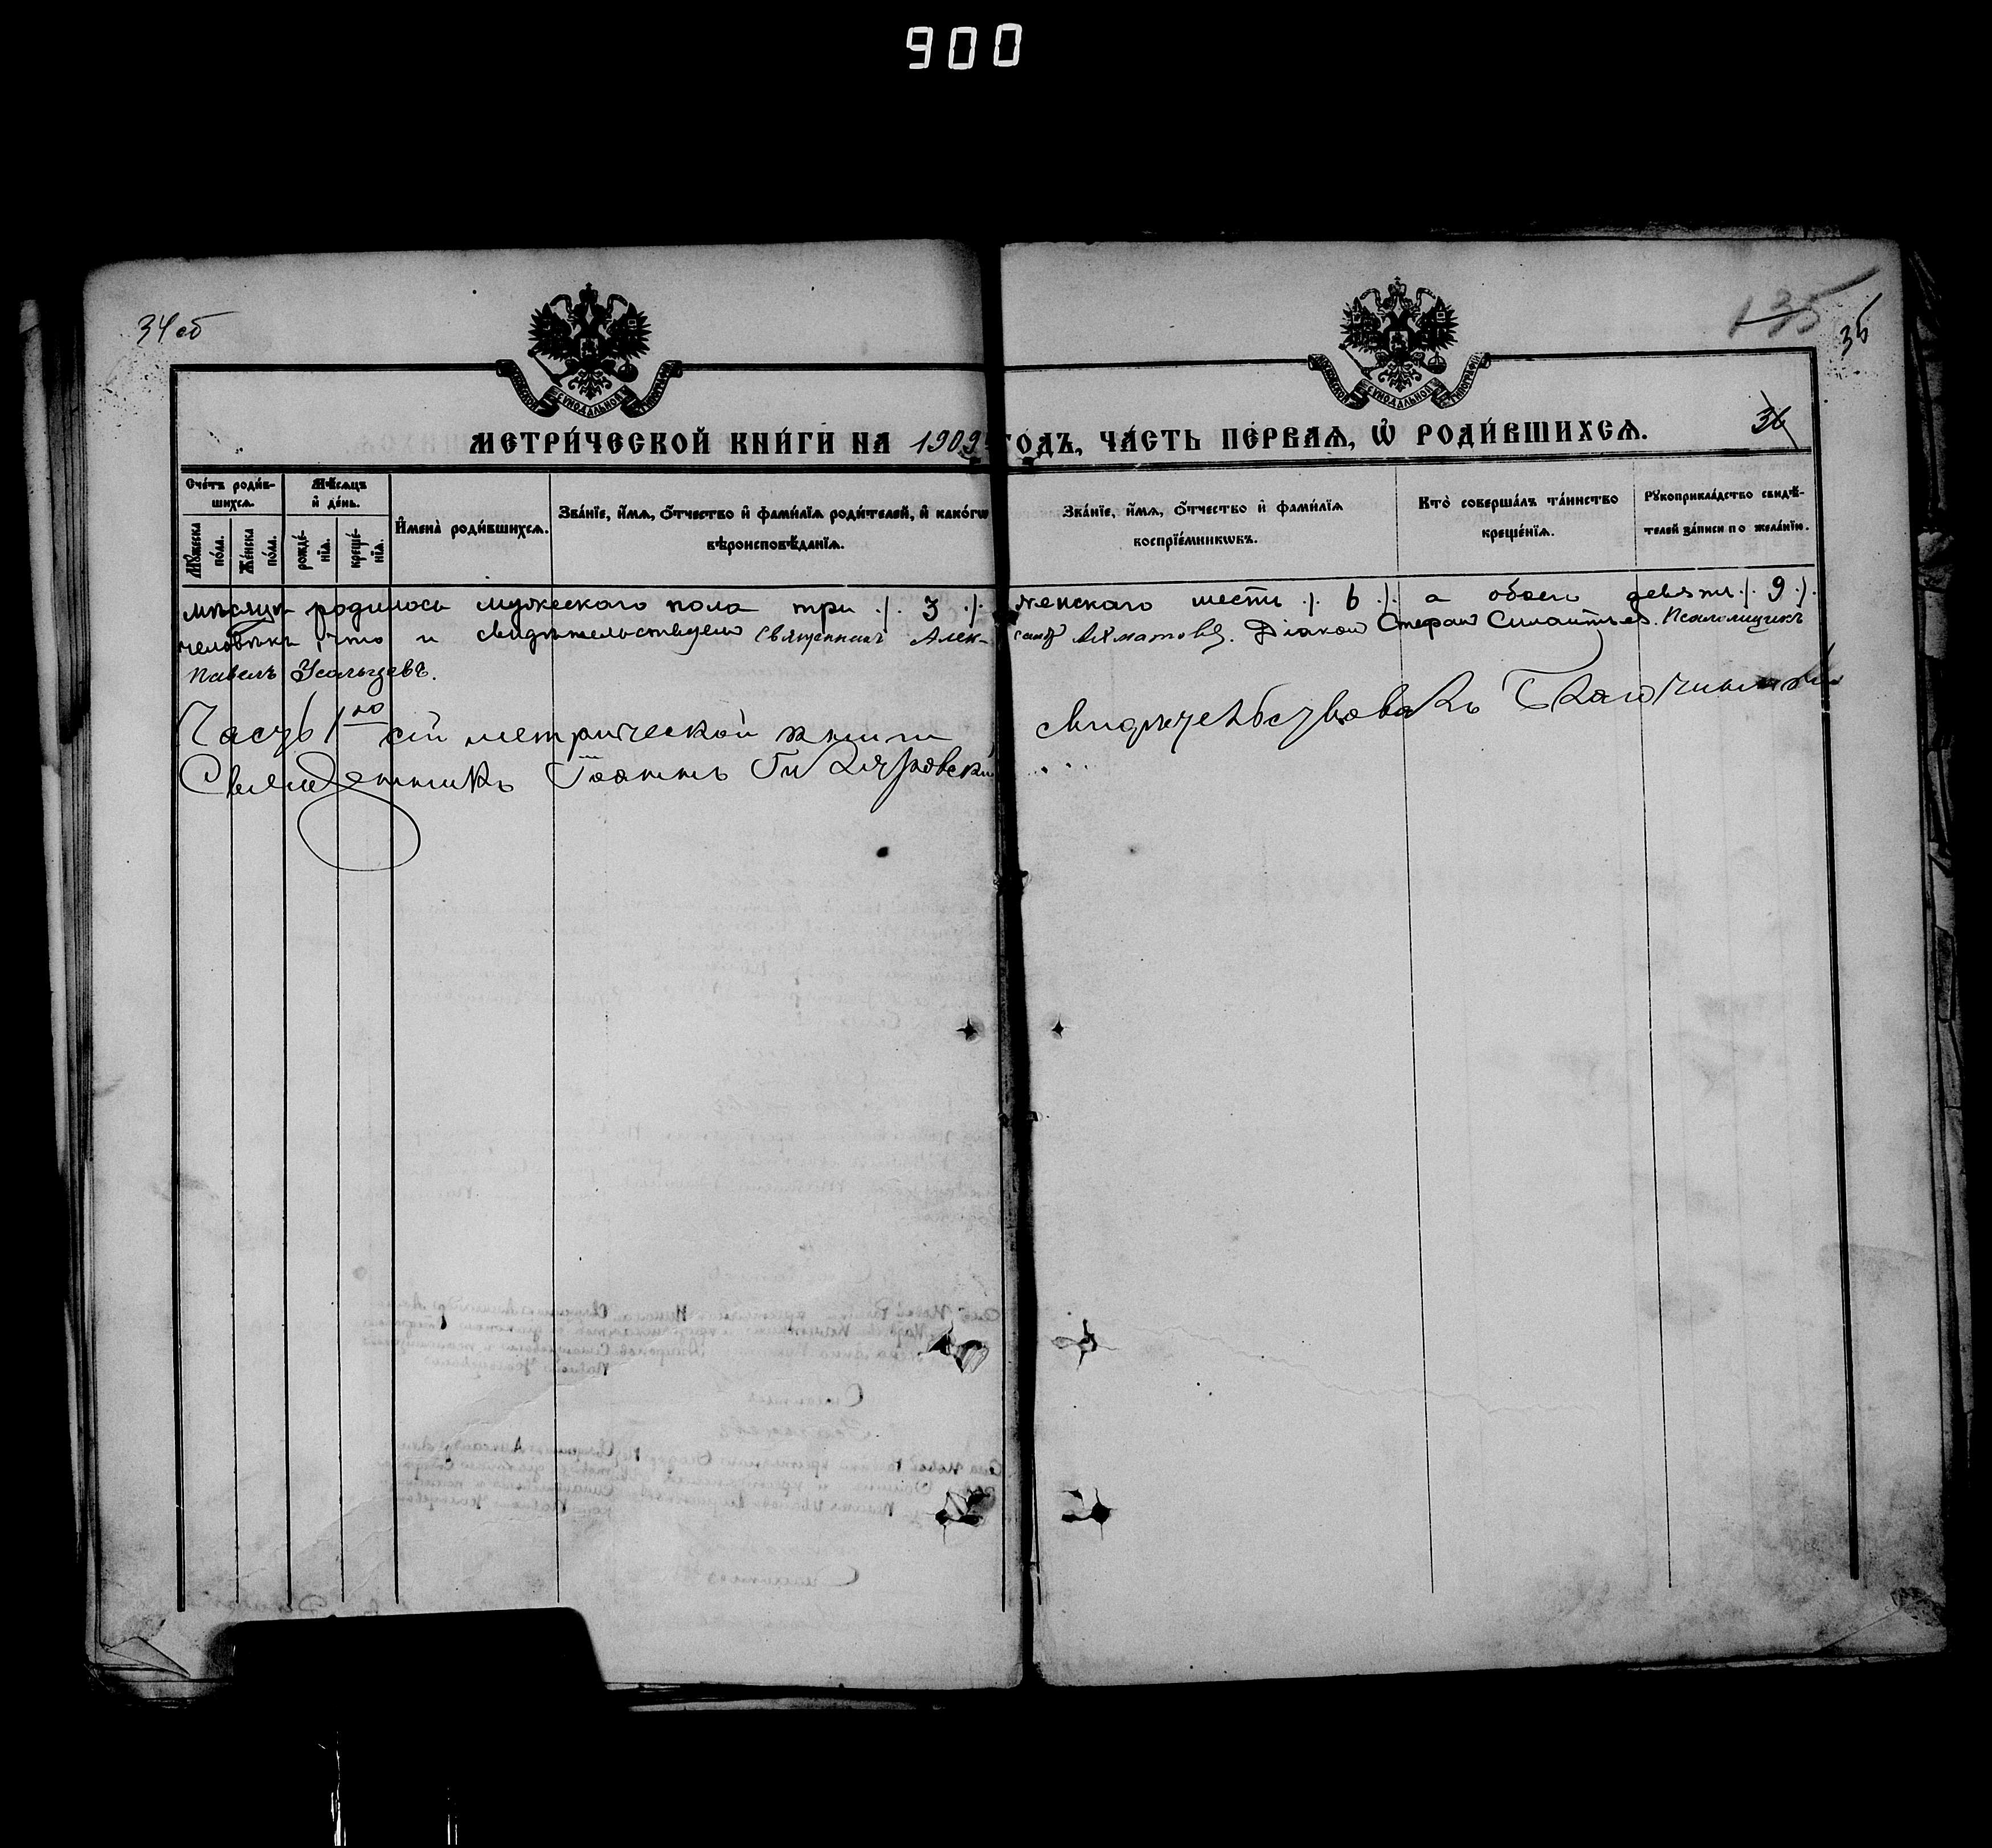 900
34 об
135
35
36
МЕТРИ́ЧЕСКОЙ КНИ́ГИ НА 1909 ГОДЪ, ЧА́СТЬ ПЕ́РВАѦ, Ѡ҆ РОДИ́ВШИХСѦ.
Сче́тъ роди́в-
шихсѧ.
Мꙋ́жеска по́ла.
Же́нска по́ла.
Мѣ́сѧцъ
и҆ де́нь.
рожде́-
нїѧ.
креще́-
нїѧ.
И҆мена̀ роди́вшихсѧ.
Зва́нїе, и҆́мѧ, ѻ҆́тчество и҆ фами́лїѧ роди́телей, и҆ како́гѡ
вѣроисповѣ́данїѧ.
Зва́нїе, и҆́мѧ, ѻ҆́тчество и҆ фами́лїѧ
воспрїе́мникѡвъ.
Кто̀ соверша́лъ та́инство
креще́нїѧ.
Рꙋкоприкла́дство свидѣ́-
телей за́писи по жела́нїю.
мѣсяцѣ родилось мужескаго пола три ./. 3 ./. женскаго шесть ./. 6 ./. а обоего девять ./. 9 ./.
человѣкъ, что и свидѣтельствуем Священникъ Алек- Діакон Стефан Силантьев. Псаломщикъ
Павелъ Усольцевъ.
Часть 1ую сей метрической книги свидѣтельствовалъ Благочинный
Священникъ Іоаннъ Гиляровскій